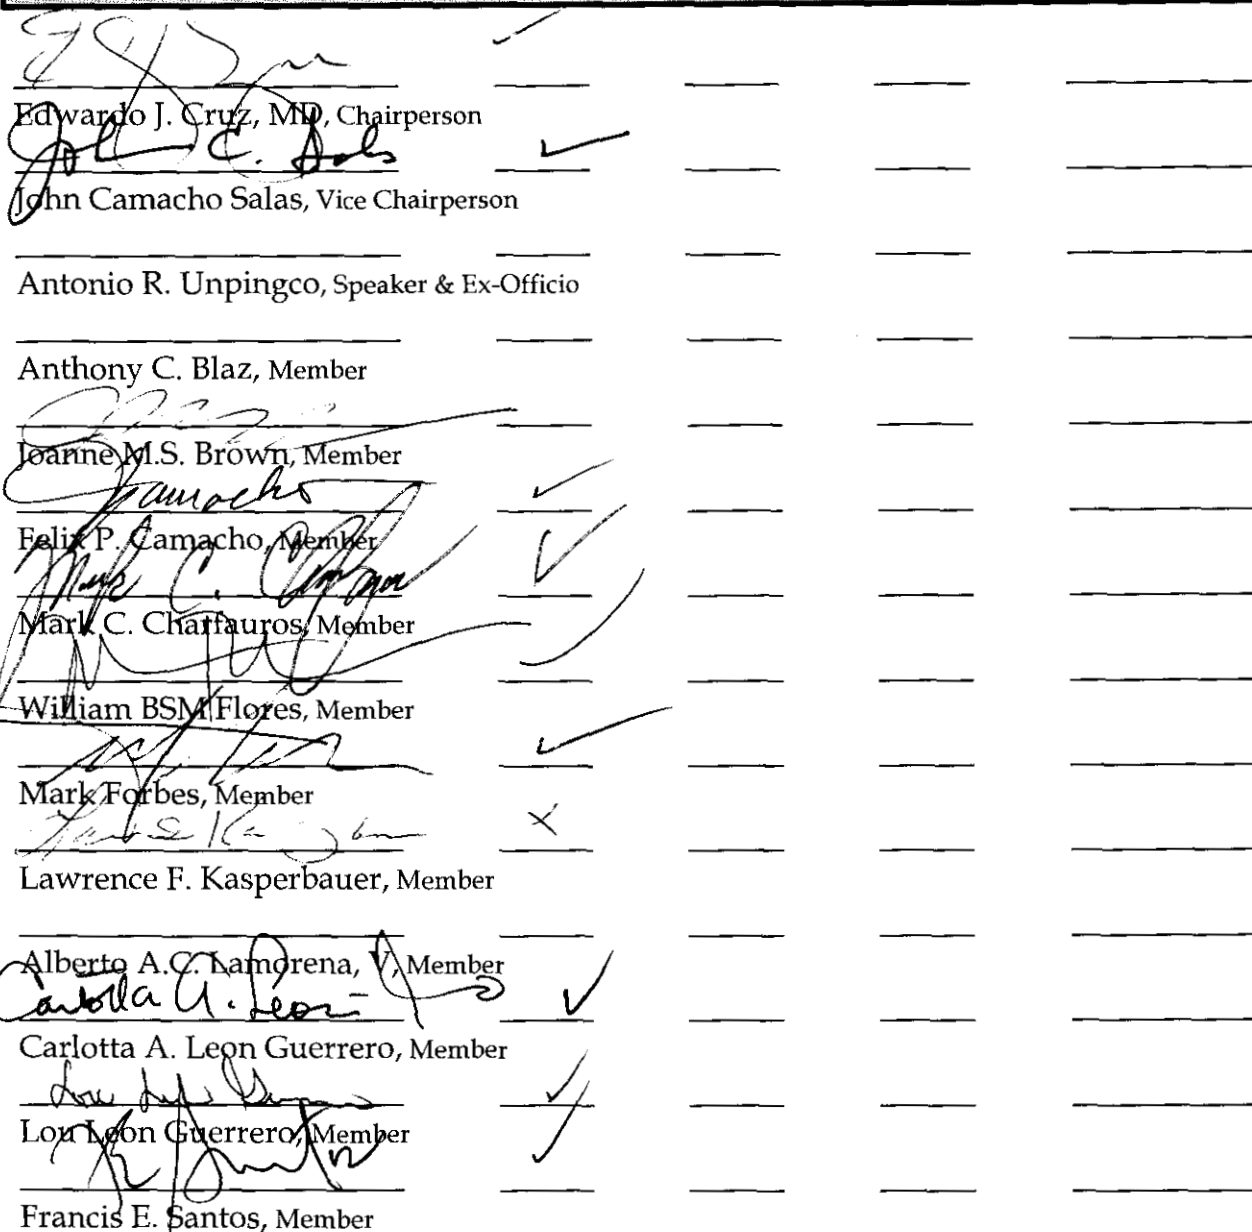 Edwardo J. Cruz, MD, Chairperson
John C. Salas
John Camacho Salas, Vice Chairperson
Antonio R. Unpingco, Speaker & Ex-Officio
Anthony C. Blaz, Member
Joanne M.S. Brown, Member
Camacho
Felix P. Camacho, Member
Mark C. Charfauros
Mark C. Charfauros, Member
William BSM Flores, Member
Mark Forbes, Member
Lawrence F. Kasperbauer, Member
Alberto A.C. Lamorena, V, Member
Carlotta A. Leon
Carlotta A. Leon Guerrero, Member
Lou Leon Guerrero
Lou Leon Guerrero, Member
Francis E. Santos, Member